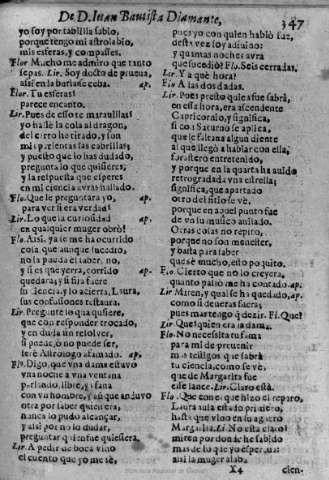 De D. Iuan Bautista Diamante, 347
yo soy por tablilla sabio,
porque tengo mi astrolabio,
mis esferas, y compasses.
Flor. Mucho me admiro que tanto
sepas. Lir. Soy docto de prueua,
assi en la burla se ceba. ap.
Flor. Tu esferas?
parece encanto.
Lir. Pues desto te marauillas?
yo hallè la cola al dragon,
del cierto he tirado, y son
mis parientas las cabrillas;
y puesto que lo has dudado,
pregunta lo que quisieres,
y la respuesta que esperes
en mi ciencia auràs hallado.
Flo. Que le preguntarà yo,
para ver si era verdad?
Lir. Lo que la curiosidad
en qualquier muger obrò!
Flo. Assi, ya se me ha ocurrido
cosa, que aunque sucediò,
no la pueda el saber, no,
y si es que yerra, corrido ap.
quedarà; y si fuere
su ciencia, y lo acierta, Laura,
sus confusiones restaura.
Lir. Pregunte lo que quisiere,
que con responder trocado,
y en duda me resoluer,
si puede, ò no puede ser,
serè Astrologo afamado. ap.
Flo. Digo, que vna dama estaua
vna noche a vna ventana
parlando, libre, y vfana
con vn hombre, y assi que anduuo
otra por saber quien era,
nunca lo pudo alcançar,
y assi por no lo dudar,
preguntar quien fue quisiera.
Lir. A pedir de boca vino
el cuento que yo me sè,
pues yo con quien hablò fuz,
desta vez soy adiuino:
y quantas noches aurà
que sucediò? Flo. Seis cerradas.
Lir. Y a què hora?
Flo. A las dos dadas.
Lir. Pues presto quiẽ fue sabrà,
en essa hora, era ascendente
Capricornio, y significa,
si con Saturno se aplica,
que le faltaua algun diente
al que llegò a hablar con ella,
forastero entretenido,
y porque en la quarta ha auido
retrogradada vna estrella;
significa, que apartado
otro del sitio se vè,
porque en aquel punto fue
de vn su musico auisado.
Otras cosas no repito,
porque no son menester,
y basta para saber
que sè mucho, esto poquito.
Flo. Cierto que no lo creyera,
quanto passò me ha contado. ap.
Lir. Miren, y qual se ha quedado, ap.
como si de veras fuera;
pues mas tengo q̃ dezir. Fl. Que?
Lir. Que? quien era la dama.
Flo. No necessita tu fama
para mi de preuenir
mas testigos que sabrà
tu ciencia, como se vè,
que de Margarita fue
este lance. Lir. Claro està.
Flo. Que con el que hizo el reparo,
Laura a la estado primero,
hasta que vino en su agüero
Margarita. Lir. No està claro?
miren por donde he sabido
mas de lo que yo esperaua:
assi la muger alaba
X4 cien-